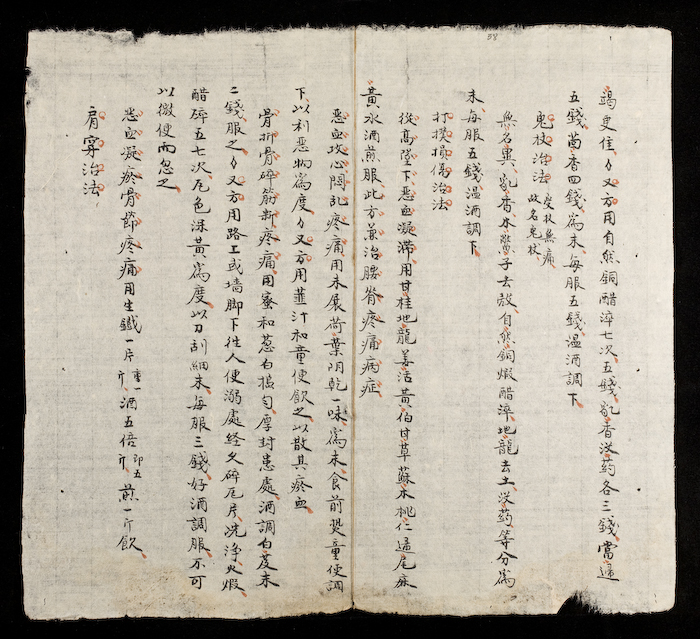 竭更佳〻又方用自然銅醋淬七次五錢乳香沒药各三錢當归
五錢茴香四錢為末每服五錢温酒調下
鬼杖治法 皮杖無痛
故名鬼杖
無名異乳香木鱉子去殼自然銅煅醋淬地龍去土沒药等分為
末每服五錢温酒調下
打撲損傷治法
從高墜下惡血凝滯用甘桂地龍羌活黃伯甘草蘇木桃仁歸尾麻
黃水酒煎服此方兼治腰脊疼痛病症
惡血攻心悶乱疼痛用未展荷葉阴乾一味為末食前熨童便調
下以利惡物為度〻又方用韭汁和童便飲之以散其瘀血
骨折骨碎筋断疼痛用蜜和葱白搗匀厚封患處酒調白芨末
二錢服之〻又方用路上或墻脚下往人便溺處经久碎瓦片洗浄火煅
醋碎五七次瓦色深黃為度以刀刮細末每服三錢好酒調服不可
以微便而忽之
惡血凝瘀骨節疼痛用生鐵一片 重一
斤 酒五倍 即五
斤 煎一斤飲
肩穿治法